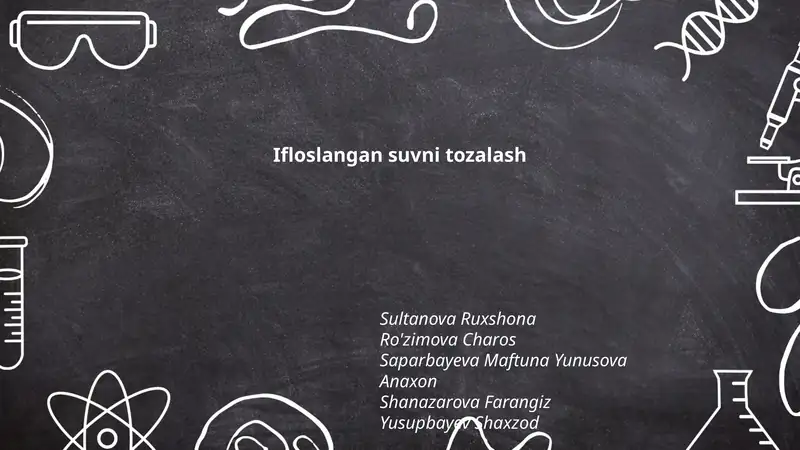 Ifloslangan suvni tozalash
Sultanova Ruxshona
Ro'zimova Charos
Saparbayeva Maftuna Yunusova
Anaxon
Shanazarova Farangiz
Yusupbayev Shaxzod